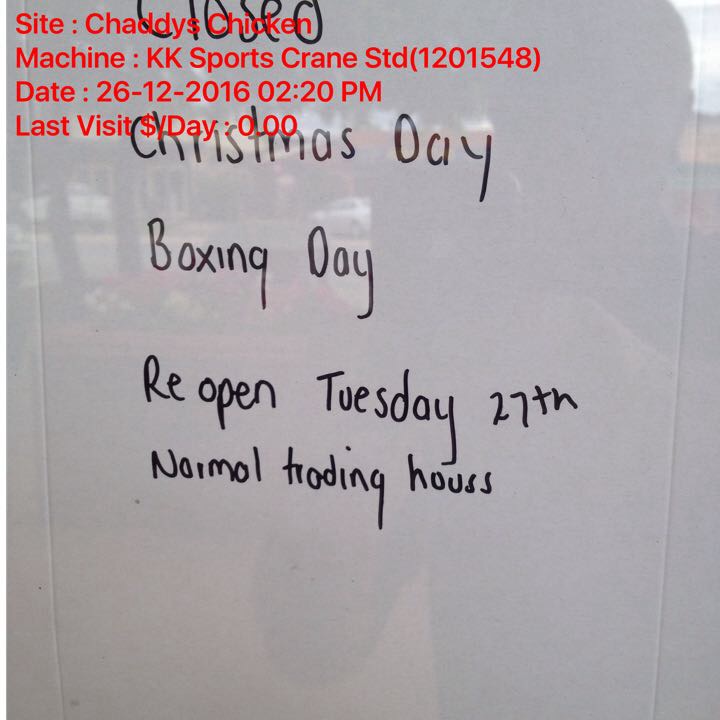 Closed
Site : Chaddys Chicken
Machine : KK Sports Crane Std(1201548)
Date : 26-12-2016 02:20 PM
Last Visit $/Day : 0.00
Christmas Day
Boxing Day
Re open Tuesday 27th
Normal trading hours